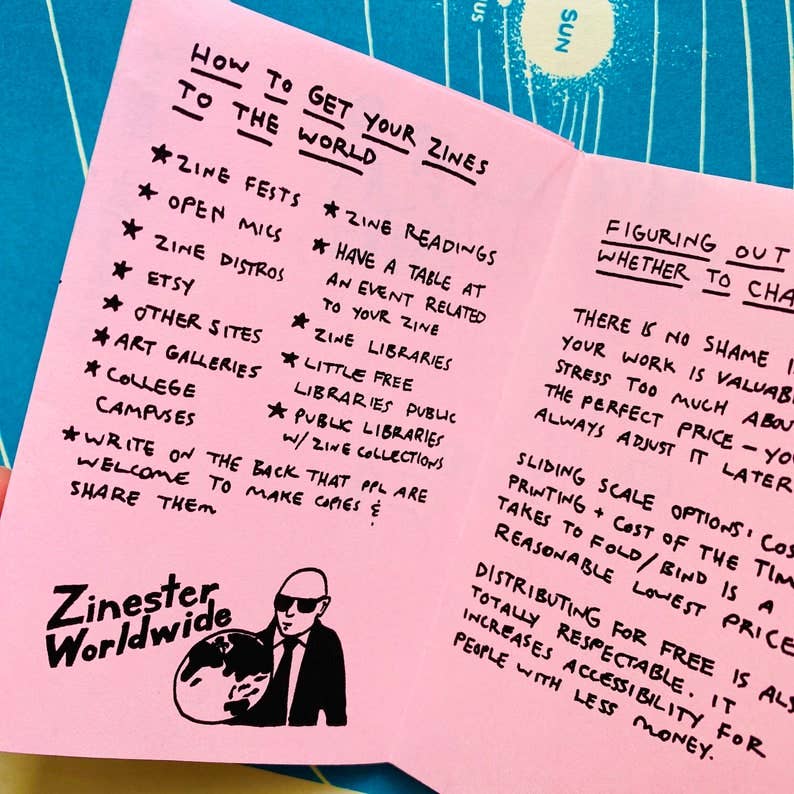 SUN
US
HOW TO GET YOUR ZINES
TO THE WORLD
★ ZINE FESTS
★ OPEN MICS
★ ZINE DISTROS
★ ETSY
★ OTHER SITES
★ ART GALLERIES
★ COLLEGE
CAMPUSES
★ ZINE READINGS
★ HAVE A TABLE AT
AN EVENT RELATED
TO YOUR ZINE
★ ZINE LIBRARIES
★ LITTLE FREE
LIBRARIES PUBLIC
★ PUBLIC LIBRARIES
W/ ZINE COLLECTIONS
★ WRITE ON THE BACK THAT PPL ARE
WELCOME TO MAKE COPIES &
SHARE THEM
Zinester
Worldwide
FIGURING OUT
WHETHER TO CHA
THERE IS NO SHAME I
YOUR WORK IS VALUAB
STRESS TOO MUCH ABOU
THE PERFECT PRICE – YO
ALWAYS ADJUST IT LATER
SLIDING SCALE OPTIONS: COS
PRINTING + COST OF THE TIM
TAKES TO FOLD/BIND IS A
REASONABLE LOWEST PRICE
DISTRIBUTING FOR FREE IS ALS
TOTALLY RESPECTABLE. IT
INCREASES ACCESSIBILITY FOR
PEOPLE WITH LESS MONEY.